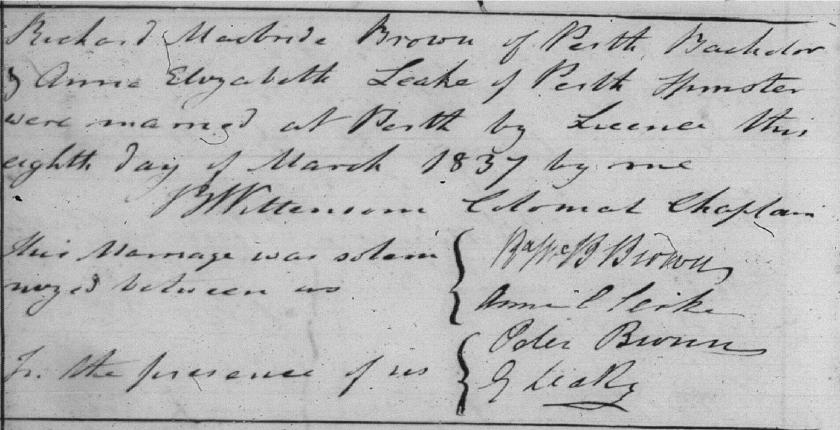 Richard Macbride Brown of Perth Bachelor
& Anne Elizabeth Leake of Perth Spinster
were married at Perth by Licence this
eighth day of March 1837 by me
J B Wittenoom Colonial Chaplain
This Marriage was solem
nized between us
Brown
Anne E Leake
In the presence of us
Peter Brown
G Leake